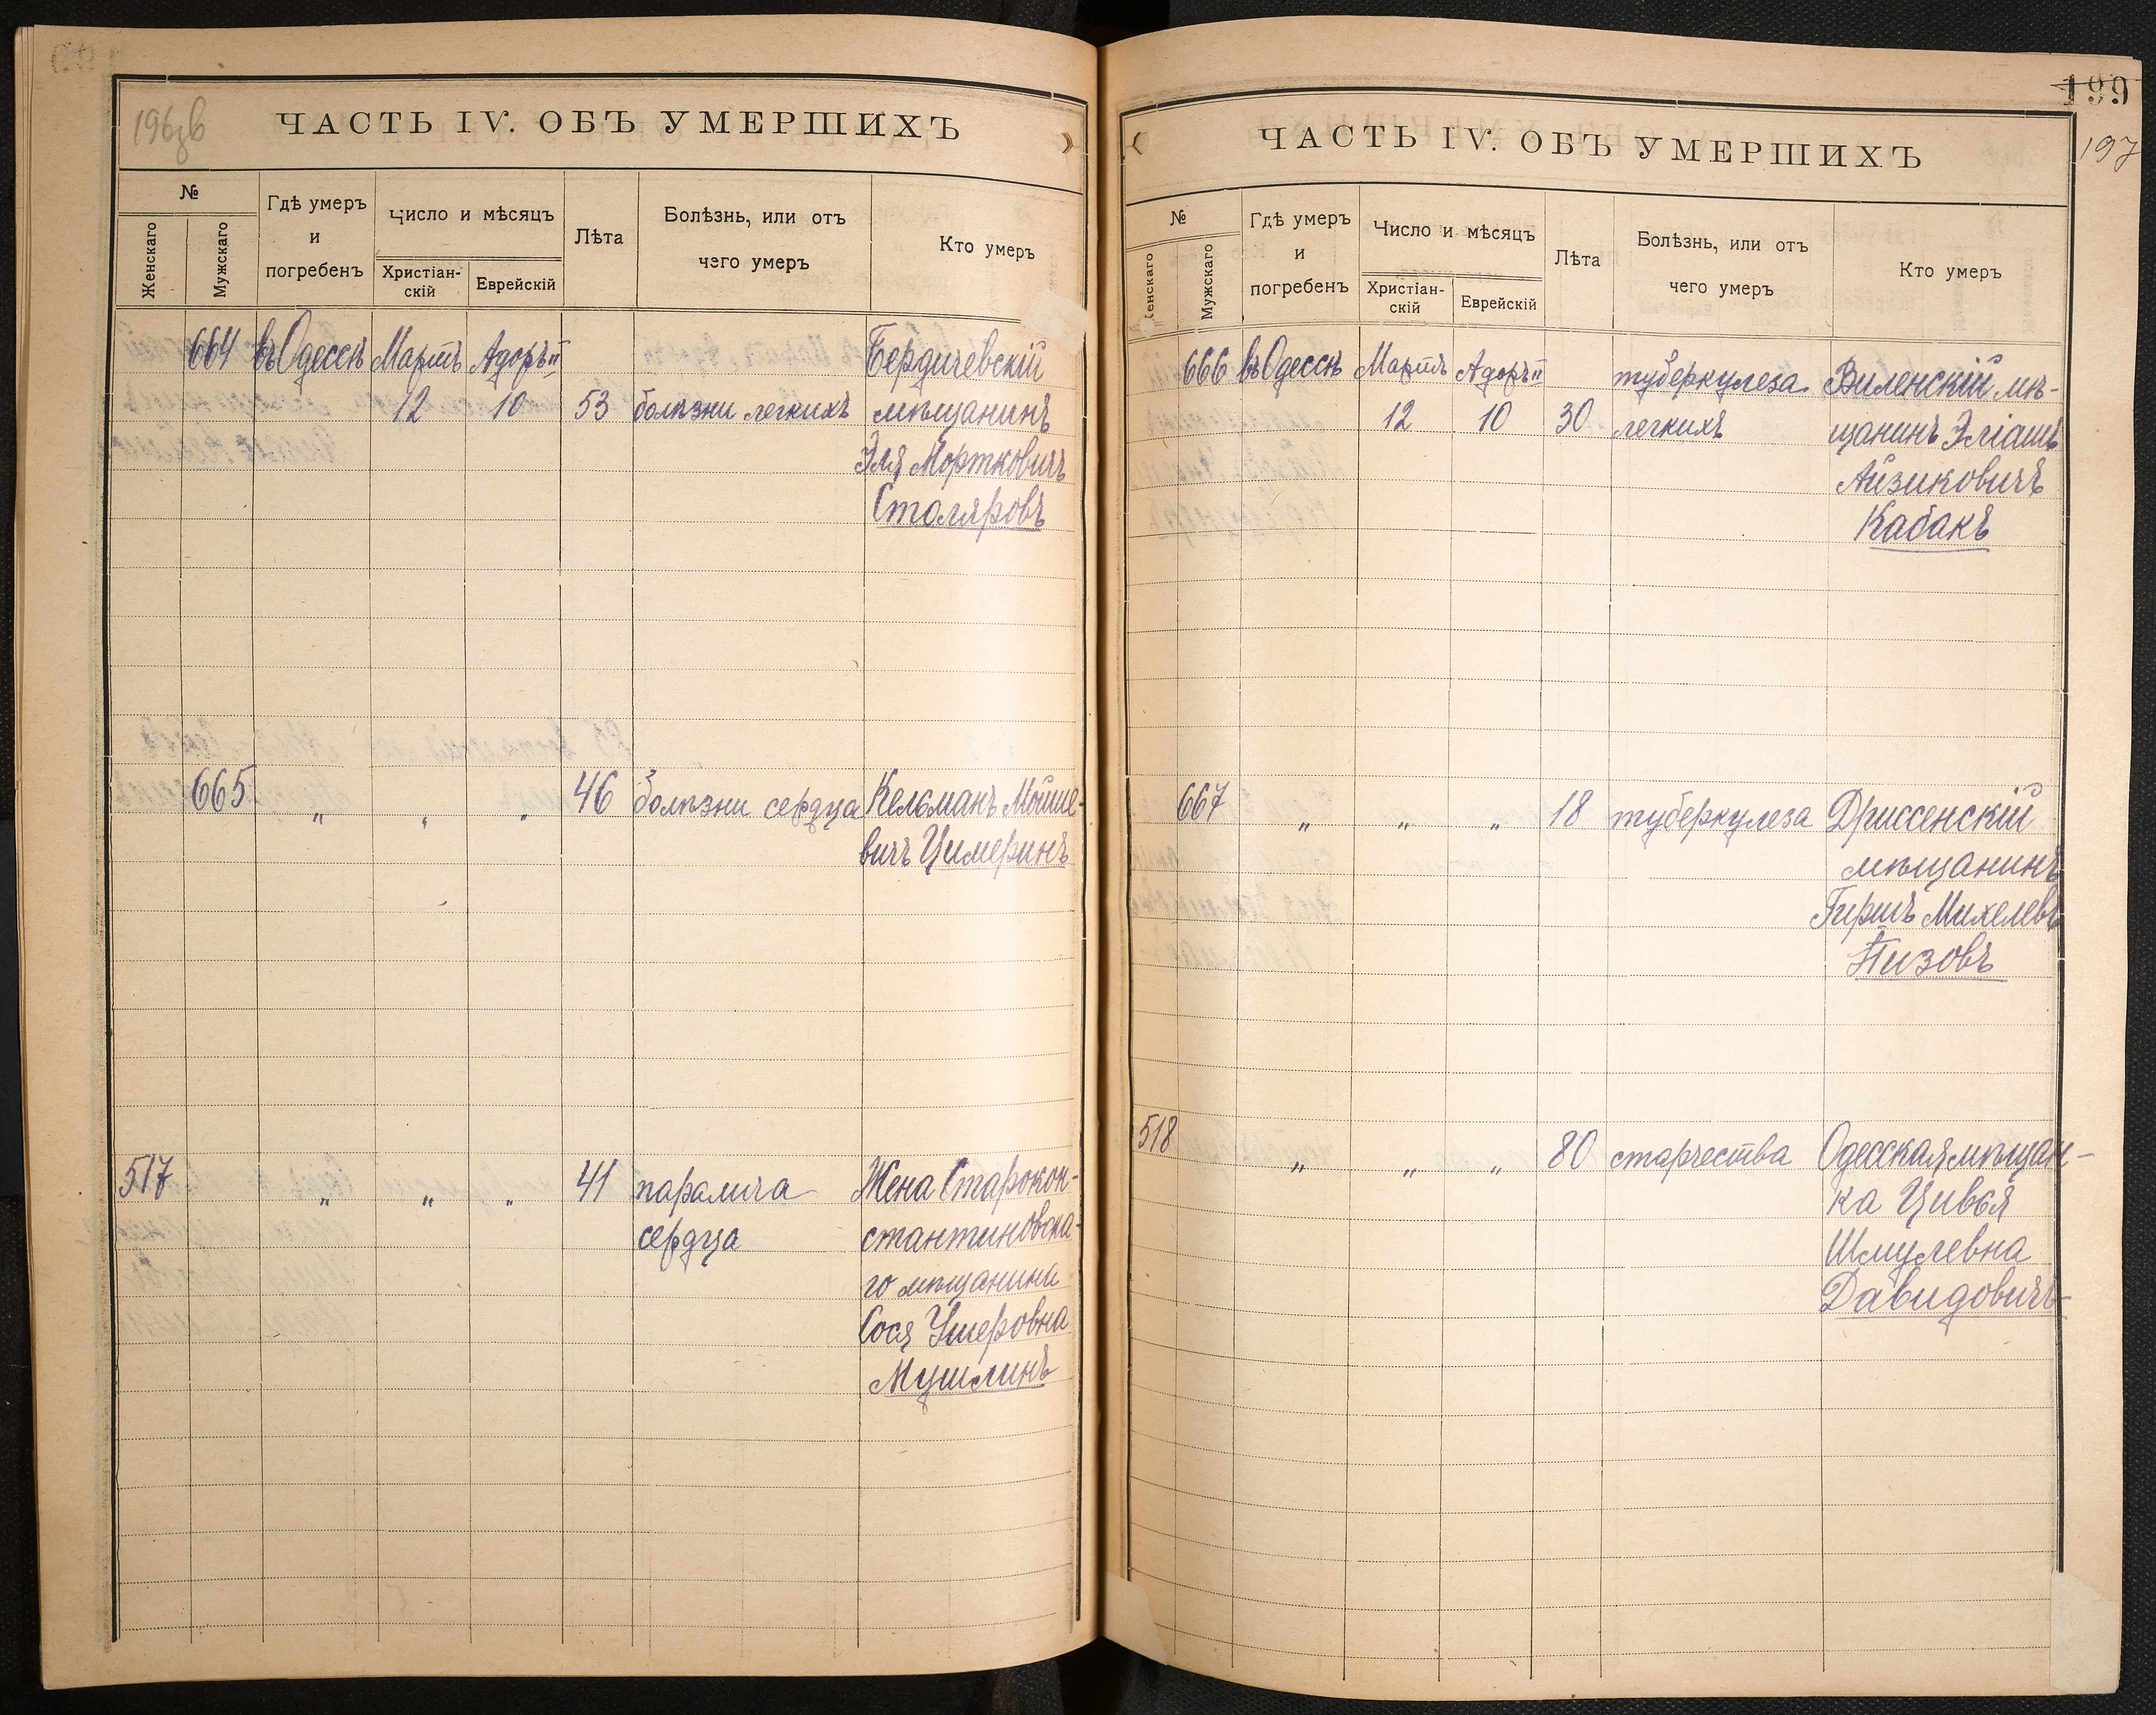 196об
ЧАСТЬ IV. ОБЪ УМЕРШИХЪ
№
Женскаго
Мужскаго
Гдѣ умеръ
и
погребенъ
Число и мѣсяцъ
Христіан-
скій
Еврейскій
Лѣта
Болѣзнь, или отъ
чего умеръ
Кто умеръ
664 въ Одессѣ Мартъ Адоръ II Бердичевскій
12 10 53 болѣзни легкихъ мѣщанинъ
Эля Мортковичъ
Столяровъ
665 „ „ „ 46 болѣзни сердца Кельманъ Мойше-
вичъ Цимеринъ
517 „ „ „ 41 паралича Жена Старокон-
сердца стантиновска-
го мѣщанина
Сося Ушеровна
Мушлинъ
199
197
ЧАСТЬ IV. ОБЪ УМЕРШИХЪ
№
Женскаго
Мужскаго
Гдѣ умеръ
и
погребенъ
Число и мѣсяцъ
Христіан-
скій
Еврейскій
Лѣта
Болѣзнь, или отъ
чего умеръ
Кто умеръ
666 въ Одессѣ Мартъ Адоръ II туберкулеза Виленскій мѣ-
12 10 30 легкихъ щанинъ Эліашъ
Айзиковичъ
Кабакъ
667 „ „ „ 18 туберкулеза Дриссенскій
мѣщанинъ
Гиршъ Михелевъ
518 „ „ „ 80 старчества Одесская мѣщан-
ка Цивья
Шмулевна
Давидовичъ